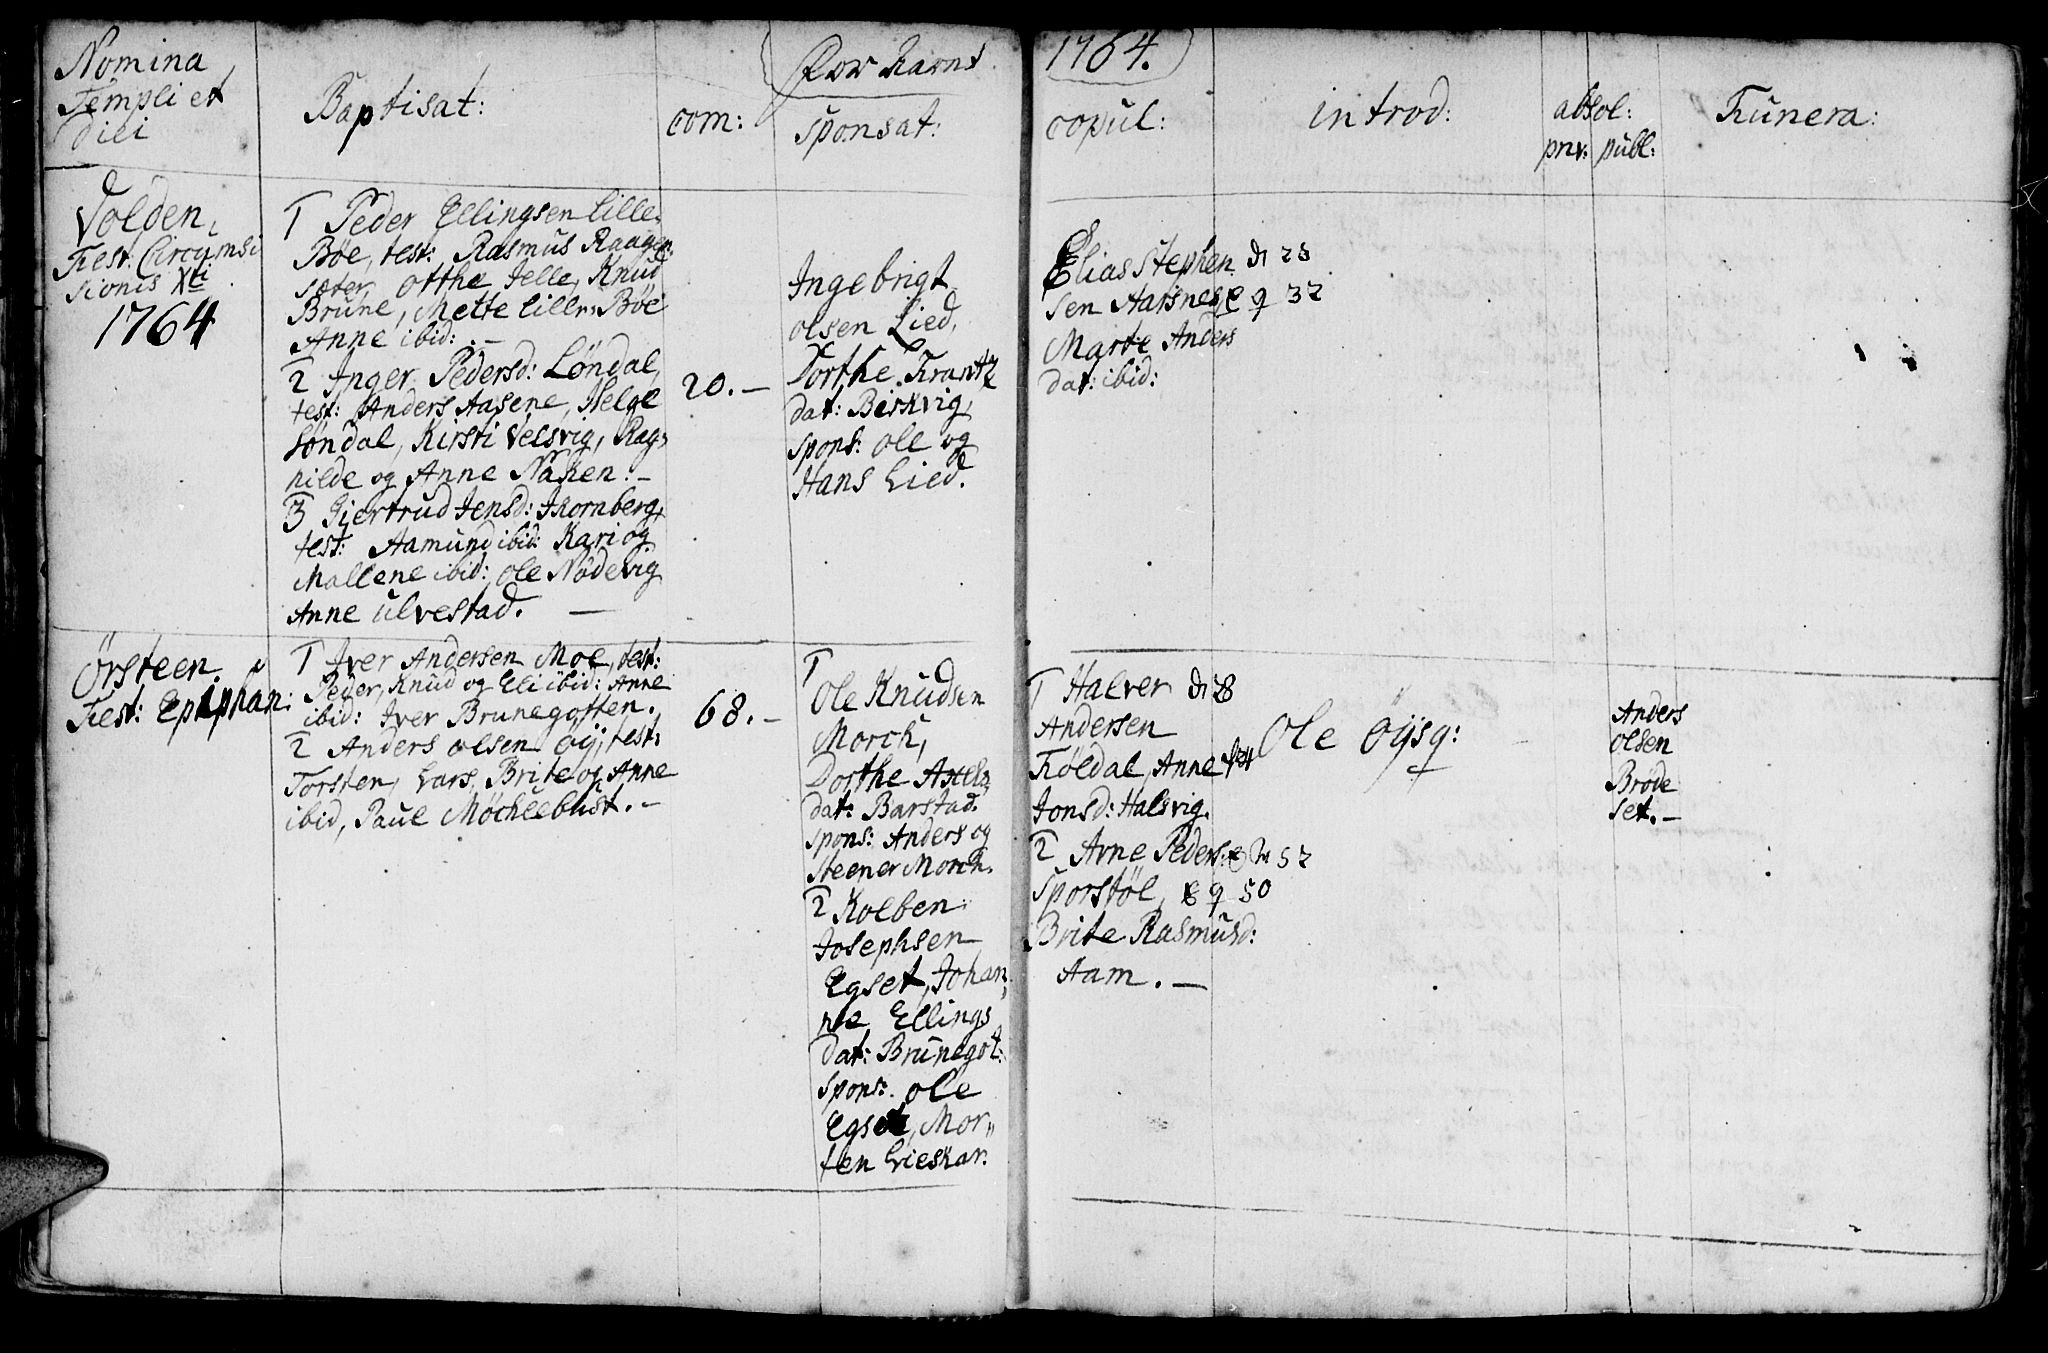 Nomina
Templi et
Diei
Baptisat:
com:
sponsat:
1764.
copul:
introd:
absol:
priv: publ:
Funera:
Volden,
Fest: Circumsi
sionis Xti
1764
1 Peder Ellingsen lille
Bøe, test: Rasmus Raagen
sæter, Otthe Ielle, Knud
Brune, Mette lille Bøe
Anne ibid: –
2 Inger Pedersd: Løndal,
test: Anders Aasene, Helge
Løndal, Kirsti Velsvig, Rag,
nilde og Anne Naken. –
3 Giertrud Jensd: Thornberg,
test: Aamund ibid: Kari og
Mallene ibid: Ole Nødevig
Anne Ulvestad. –
20. –
Ingebrigt
Olsen Lied,
Dorthe Frantz
dat: Birkvig,
spons: Ole og
Hans Lied.
Elias Stephen
sen Aarsnes
37
Marte Anders
dat: ibid:
Örsteen
Fest: Epiphan:
1 Iver Andersen Moe, test:
Peder, Knud og Eli ibid: Anne
ibid: Iver Brunegotten.
2 Anders Olsen Øy, test:
Torsten, Lars, Brite og Anne
ibid, Paul Möchlebust. –
68. –
1
Ole Knudsen
Morck,
Dorthe Axels
dat: Barstad.
spons: Anders og
Steener Morck.
2 Kolben
Josephsen
Egset, Johan
ne Ellings
dat: Brunegot:
spons: Ole
Egset, Mor„
ten Lieskar.
1 Halver
Andersen
Földal, Anne
Jonsd: Halsvig.
2 Arne Peders: 57
Sporstöl, 50
Brite Rasmusd:
Aam. –
Ole Öysg:
Anders
Olsen
Brøde
set. –